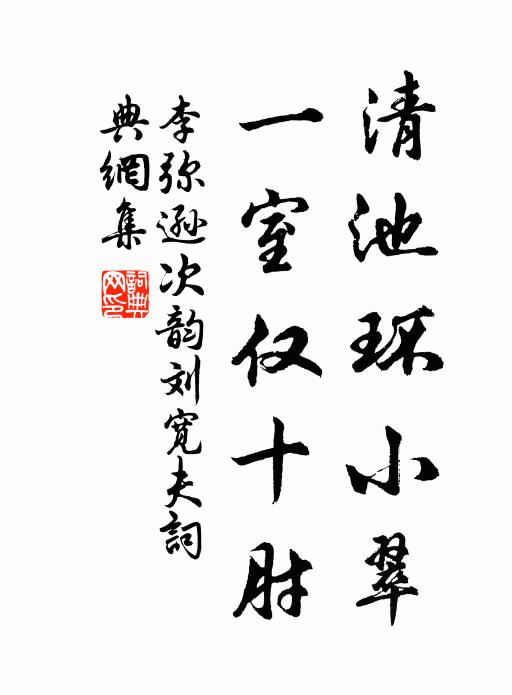 清池环小翠
一室仅十肘
李弥逊次韵刘宽夫詞
典網集
詞典
网印